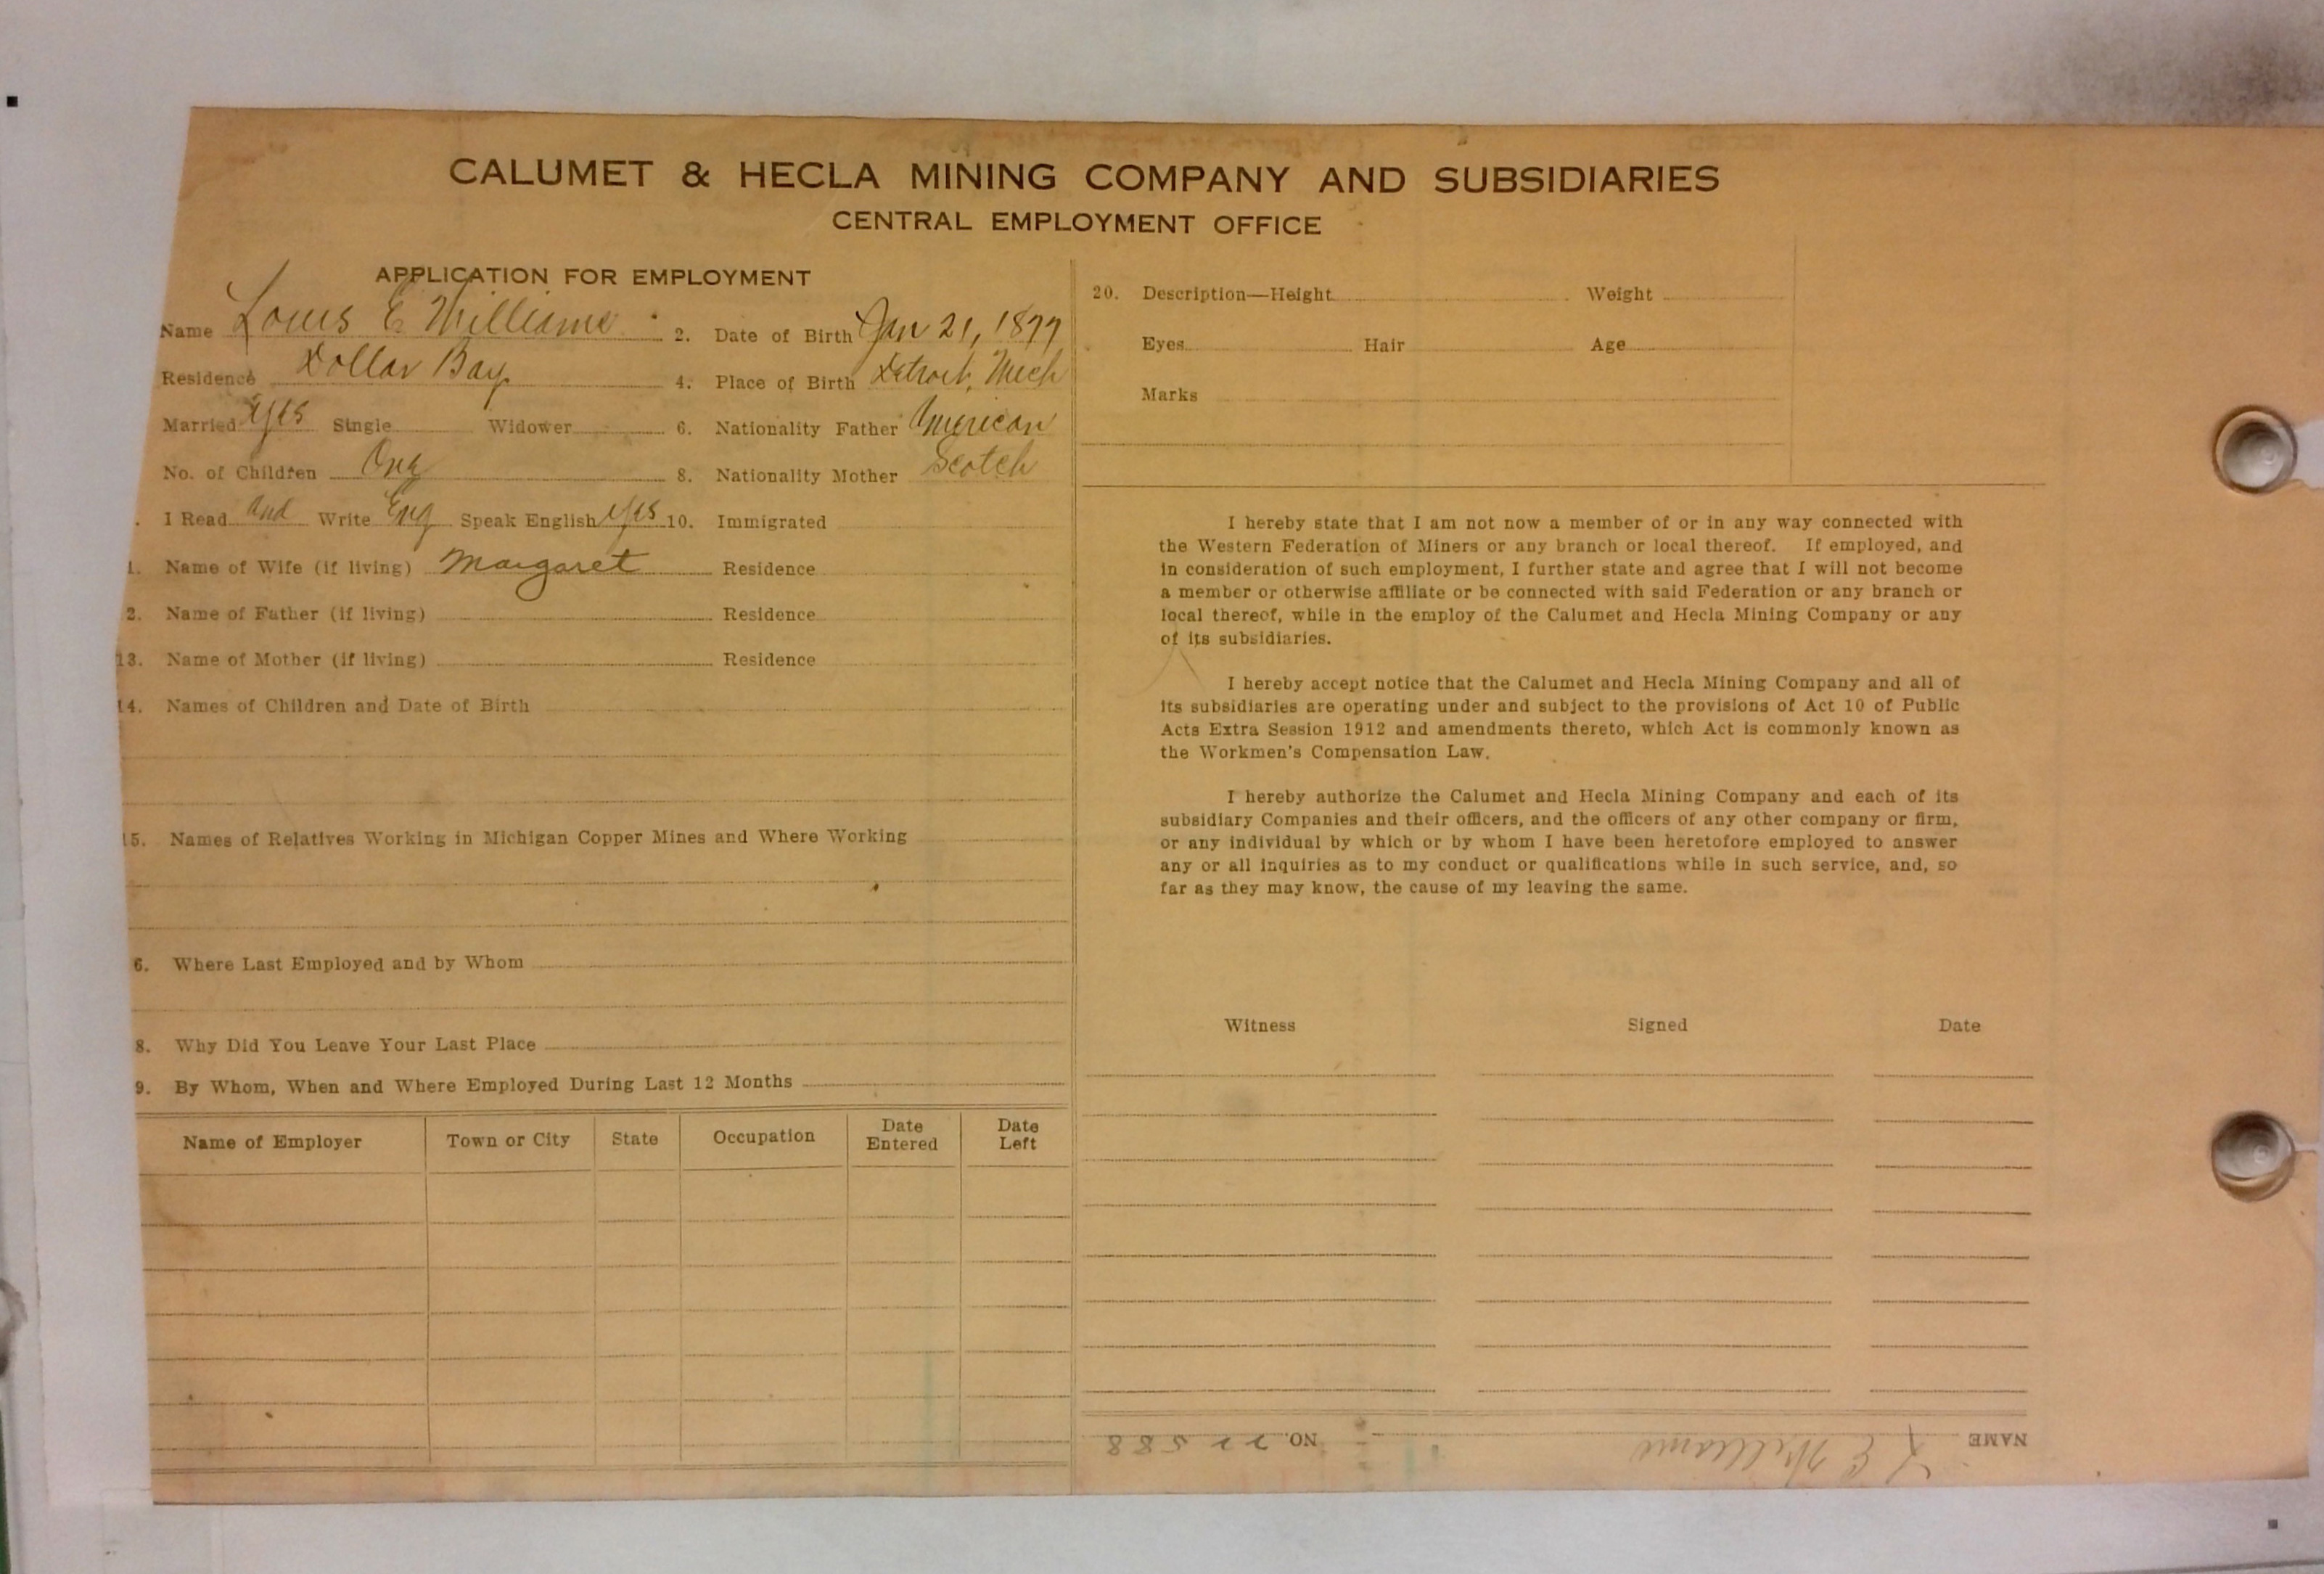 CALUMET & HECLA MINING COMPANY AND SUBSIDIARIES
CENTRAL EMPLOYMENT OFFICE
APPLICATION FOR EMPLOYMENT
Name Louis E Williams 2. Date of Birth Jan 21, 1877
Residence Dollar Bay 4. Place of Birth Detroit, Mich
Married Yes Single Widower 6. Nationality Father American
No. of Children One 8. Nationality Mother Scotch
I Read and Write Eng Speak English yes 10. Immigrated
1. Name of Wife (if living) Margaret Residence
2. Name of Father (if living) Residence
13. Name of Mother (if living) Residence
14. Names of Children and Date of Birth
15. Names of Relatives Working in Michigan Copper Mines and Where Working
6. Where Last Employed and by Whom
8. Why Did You Leave Your Last Place
9. By Whom, When and Where Employed During Last 12 Months
Name of Employer Town or City State Occupation Date Entered Date Left
20. Description—Height Weight
Eyes Hair Age
Marks
I hereby state that I am not now a member of or in any way connected with
the Western Federation of Miners or any branch or local thereof. If employed, and
in consideration of such employment, I further state and agree that I will not become
a member or otherwise affiliate or be connected with said Federation or any branch or
local thereof, while in the employ of the Calumet and Hecla Mining Company or any
of its subsidiaries.
I hereby accept notice that the Calumet and Hecla Mining Company and all of
its subsidiaries are operating under and subject to the provisions of Act 10 of Public
Acts Extra Session 1912 and amendments thereto, which Act is commonly known as
the Workmen's Compensation Law.
I hereby authorize the Calumet and Hecla Mining Company and each of its
subsidiary Companies and their officers, and the officers of any other company or firm,
or any individual by which or by whom I have been heretofore employed to answer
any or all inquiries as to my conduct or qualifications while in such service, and, so
far as they may know, the cause of my leaving the same.
Witness Signed Date
NAME L E Williams NO. 22588